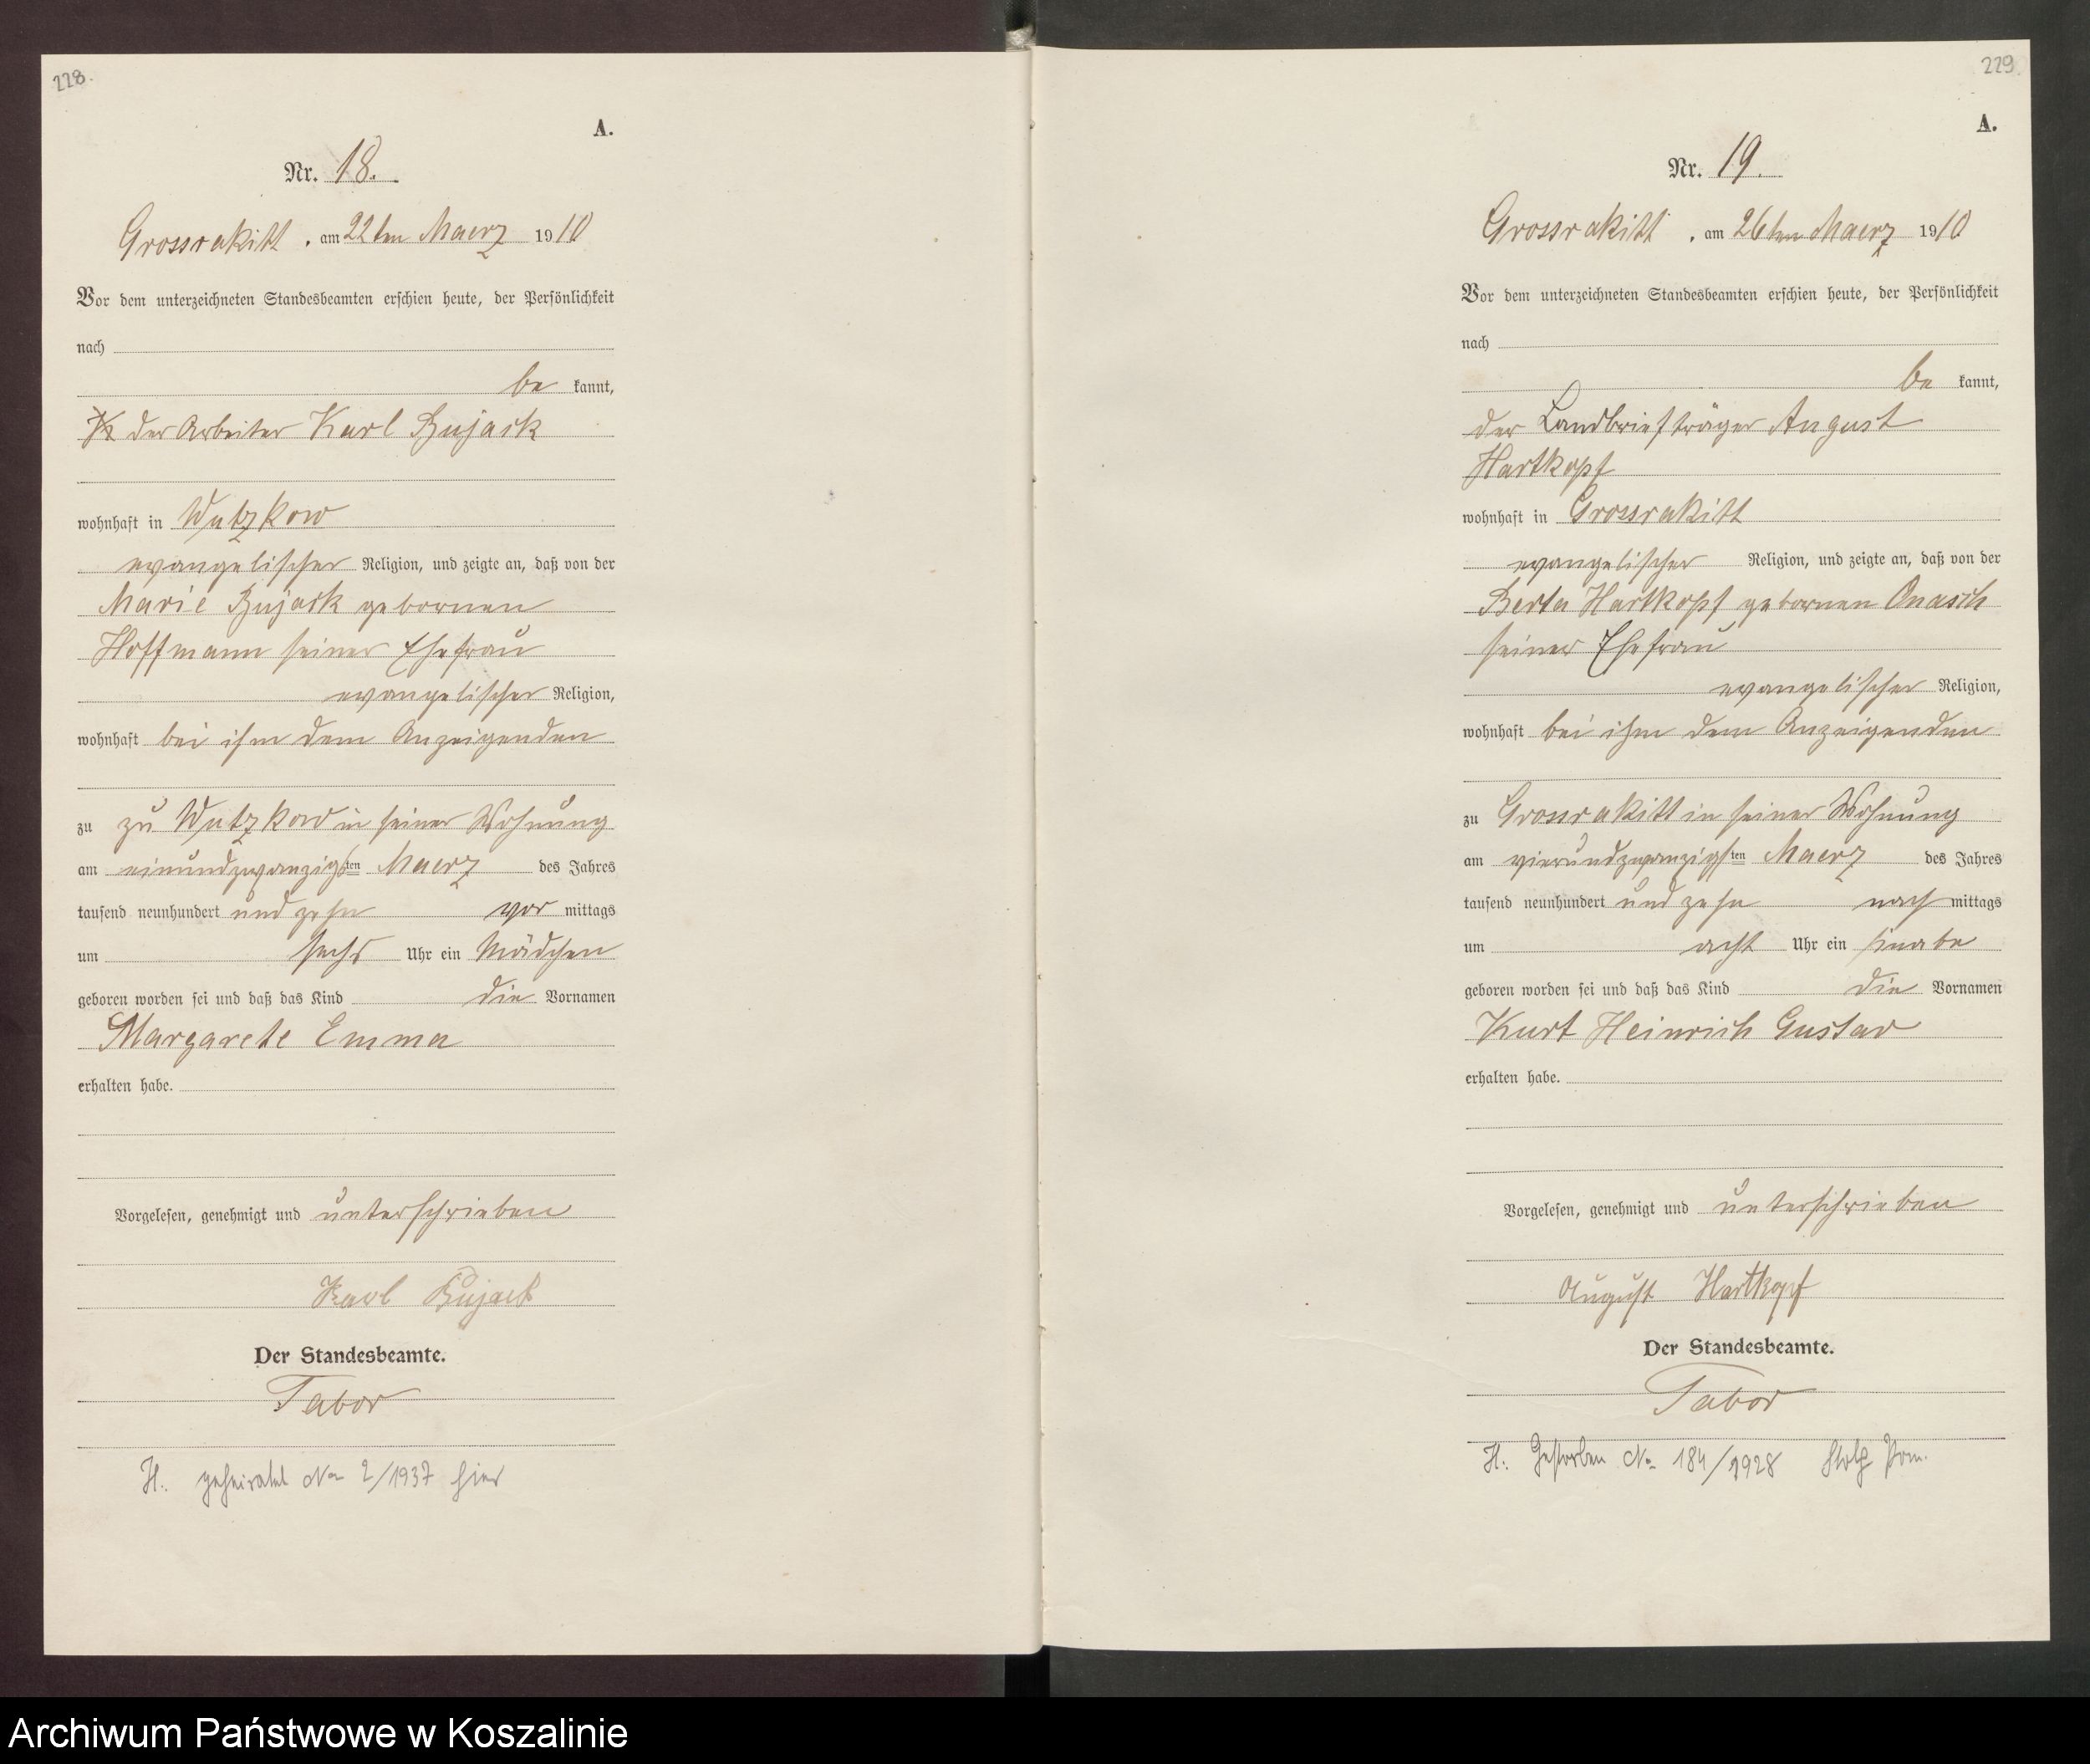 228.
A.
Nr. 18.
Grossrakitt, am 22ten Maerz 1910
Vor dem unterzeichneten Standesbeamten erschien heute, der Persönlichkeit
nach
be kannt,
der Arbeiter Karl Bujack
wohnhaft in Wutzkow
evangelischer Religion, und zeigte an, daß von der
Marie Bujack gebornen
Hoffmann seiner Ehefrau
evangelischer Religion,
wohnhaft bei ihm dem Anzeigenden
zu zu Wutzkow in seiner Wohnung
am einundzwanzigsten Maerz des Jahres
tausend neunhundert und zehn vor mittags
um sechs Uhr ein Mädchen
geboren worden sei und daß das Kind die Vornamen
Margarete Emma
erhalten habe.
Vorgelesen, genehmigt und unterschrieben
Karl Bujack
Der Standesbeamte.
Tabor
H. geheiratet No 2/1937 hier
229.
A.
Nr. 19.
Grossrakitt, am 26ten Maerz 1910
Vor dem unterzeichneten Standesbeamten erschien heute, der Persönlichkeit
nach
be kannt,
der Landbriefträger August
Hartkopf
wohnhaft in Grossrakitt
evangelischer Religion, und zeigte an, daß von der
Berta Hartkopf gebornen Onasch
seiner Ehefrau
evangelischer Religion,
wohnhaft bei ihm dem Anzeigenden
zu Grossrakitt in seiner Wohnung
am vierundzwanzigsten Maerz des Jahres
tausend neunhundert und zehn nach mittags
um acht Uhr ein Knabe
geboren worden sei und daß das Kind die Vornamen
Kurt Heinrich Gustav
erhalten habe.
Vorgelesen, genehmigt und unterschrieben
August Hartkopf
Der Standesbeamte.
Tabor
H. Gestorben No 184/1928 Stolp Pom.
Archiwum Państwowe w Koszalinie